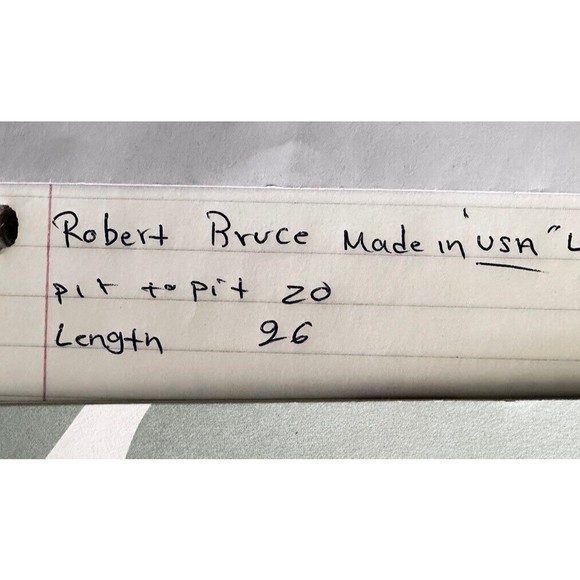 Robert Bruce Made in 'USA "L
pit to pit 20
Length 26